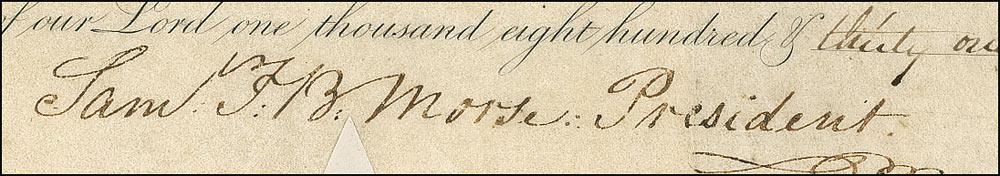 of our Lord one thousand eight hundred & thirty one
Sam. F. B. Morse. President.